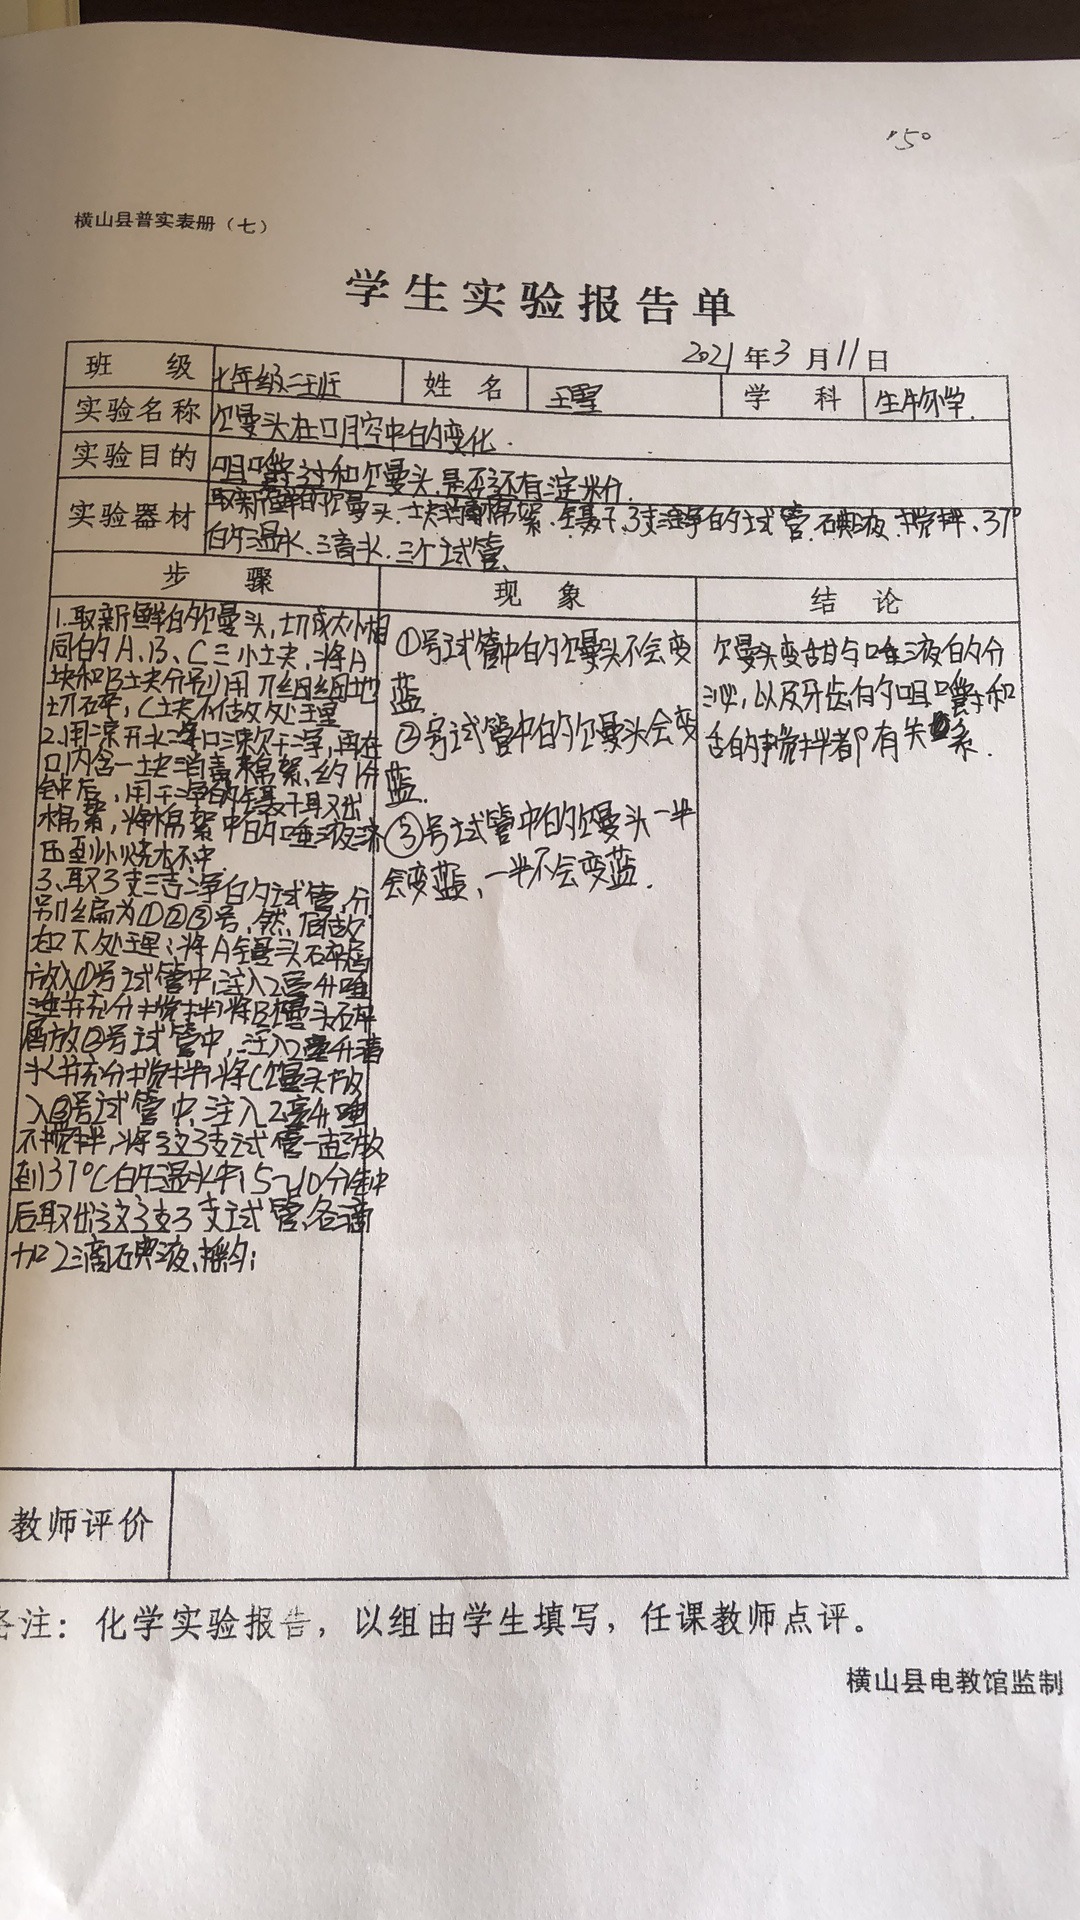 '50
横山县普实表册（七）
学生实验报告单
2021年3月11日
班 级 七年级二班 姓名 王雪 学 科 生物学.
实验名称 馒头在口腔中的变化.
实验目的 咀嚼过和馒头.是否还有淀米分.
实验器材 取新鲜的馒头.块消毒棉絮.镊子.3支洁净的试管.碘液.搅拌、37°
的温水.清水.三个试管.
步 骤 现 象 结 论
1.取新鲜的馒头,切成大小相
同的A、B、C三小块,将A
块和B块分别用刀细细地
切碎,C块不做处理
2.用凉开水将口漱干净,再在
口内含一块消毒棉絮、约1分
钟后,用干净的镊子取出
棉絮,将棉絮中的唾液
到小烧杯中
3、取3支洁净的试管,分
别编为①②③号,然后做
如下处理:将A馒头碎屑
放入①号试管中,注入2毫升唾
液并充分搅拌;将B馒头碎
屑放②号试管中,注入2毫升清
水并充分搅拌;将C馒头放
入③号试管中,注入2毫升唾
不搅拌,将这3支试管一起放
到37°C的温水中;5~10分钟
后取出这3支3支试管、各滴
加2滴碘液、摇匀;
①号试管中的馒头不会变
蓝
②号试管中的馒头会变
蓝.
③号试管中的馒头一半
会变蓝,一半不会变蓝.
馒头变甜与唾液的分
泌,以及牙齿的咀嚼和
舌的搅拌都有关系.
教师评价
备注：化学实验报告，以组由学生填写，任课教师点评。
横山县电教馆监制